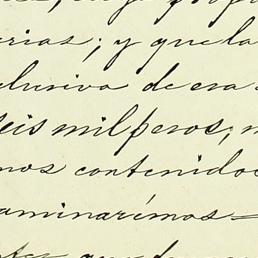 erias; y que la
clusiva de esa
seis mil pesos;
mos contenidos
aminarémos